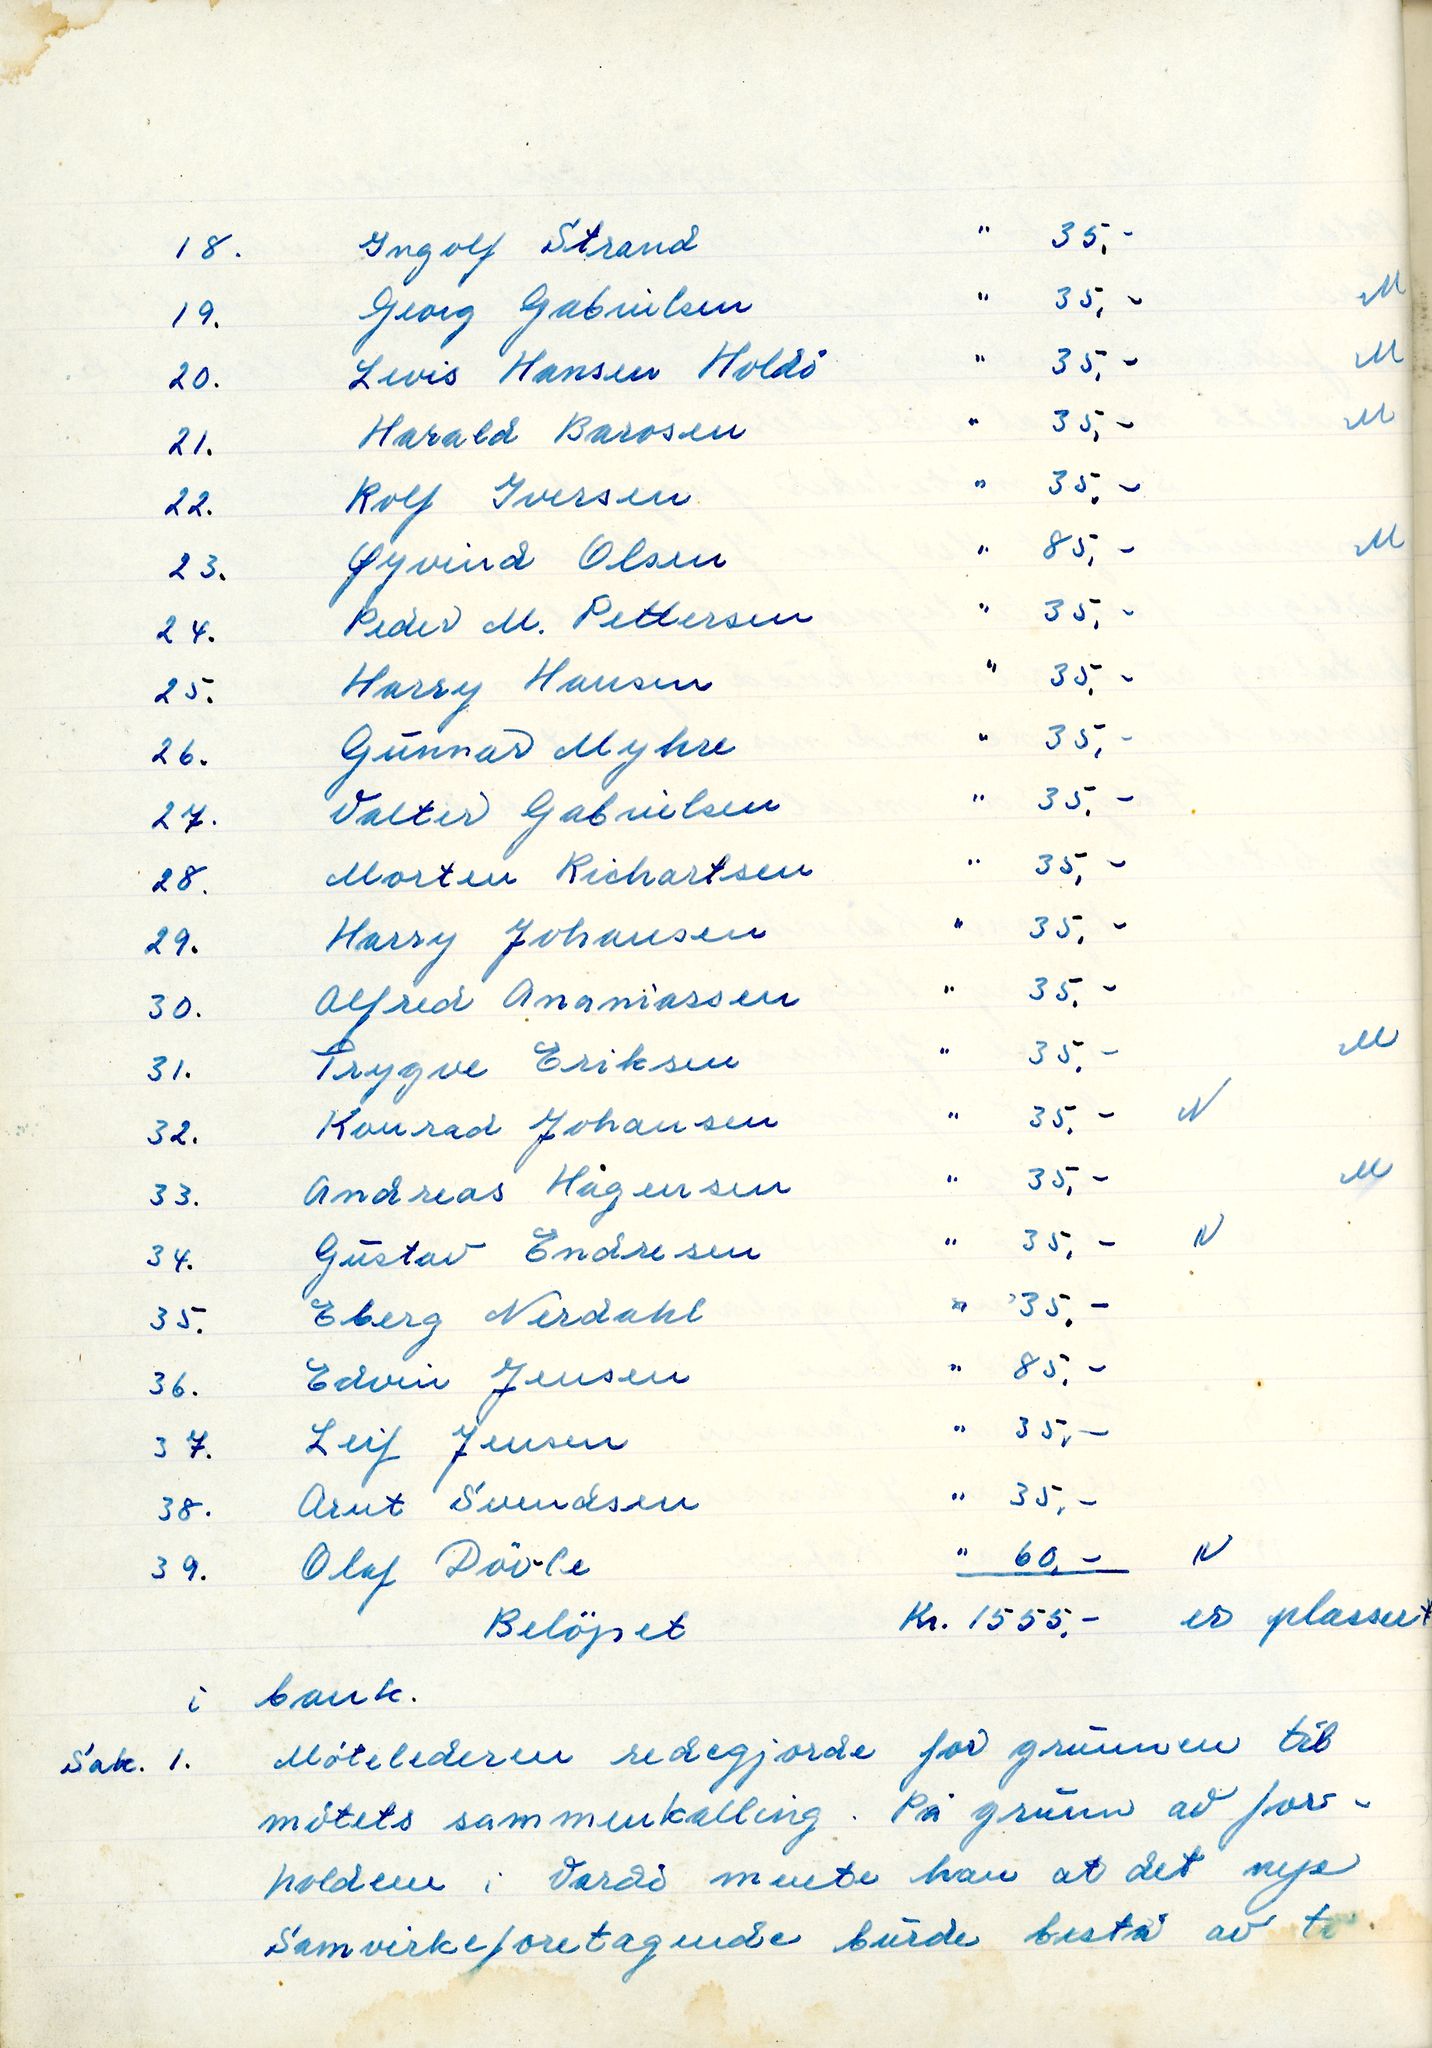 18. Ingolf Strand " 35,-
19. Georg Gabrielsen " 35,- M
20. Levis Hansen Holdö " 35,- M
21. Harald Barosen " 35,- M
22. Rolf Iversen " 35,-
23. Øyvind Olsen " 85,- M
24. Peder M. Pettersen " 35,-
25. Harry Hansen " 35,-
26. Gunnar Myhre " 35,-
27. Valter Gabrielsen " 35,-
28. Morten Richartsen " 35,-
29. Harry Johansen " 35,-
30. Alfred Ananiassen " 35,-
31. Trygve Eriksen " 35,- M
32. Konrad Johansen " 35,- N
33. Andreas Hågensen " 35,- M
34. Gustav Endresen " 35,- N
35. Eberg Nerdahl " 35,-
36. Edvin Jensen " 85,-
37. Leif Jensen " 35,-
38. Arnt Svendsen " 35,-
39. Olaf Dövle " 60,- N
Belöpet Kr. 1555,- er plassert
i bank.
Sak. 1. Mötelederen redegjorde for grunnen til
mötets sammenkalling. På grunn av for-
holdene i Vardö mente han at det nye
Samvirkeforetagende burde bestå av